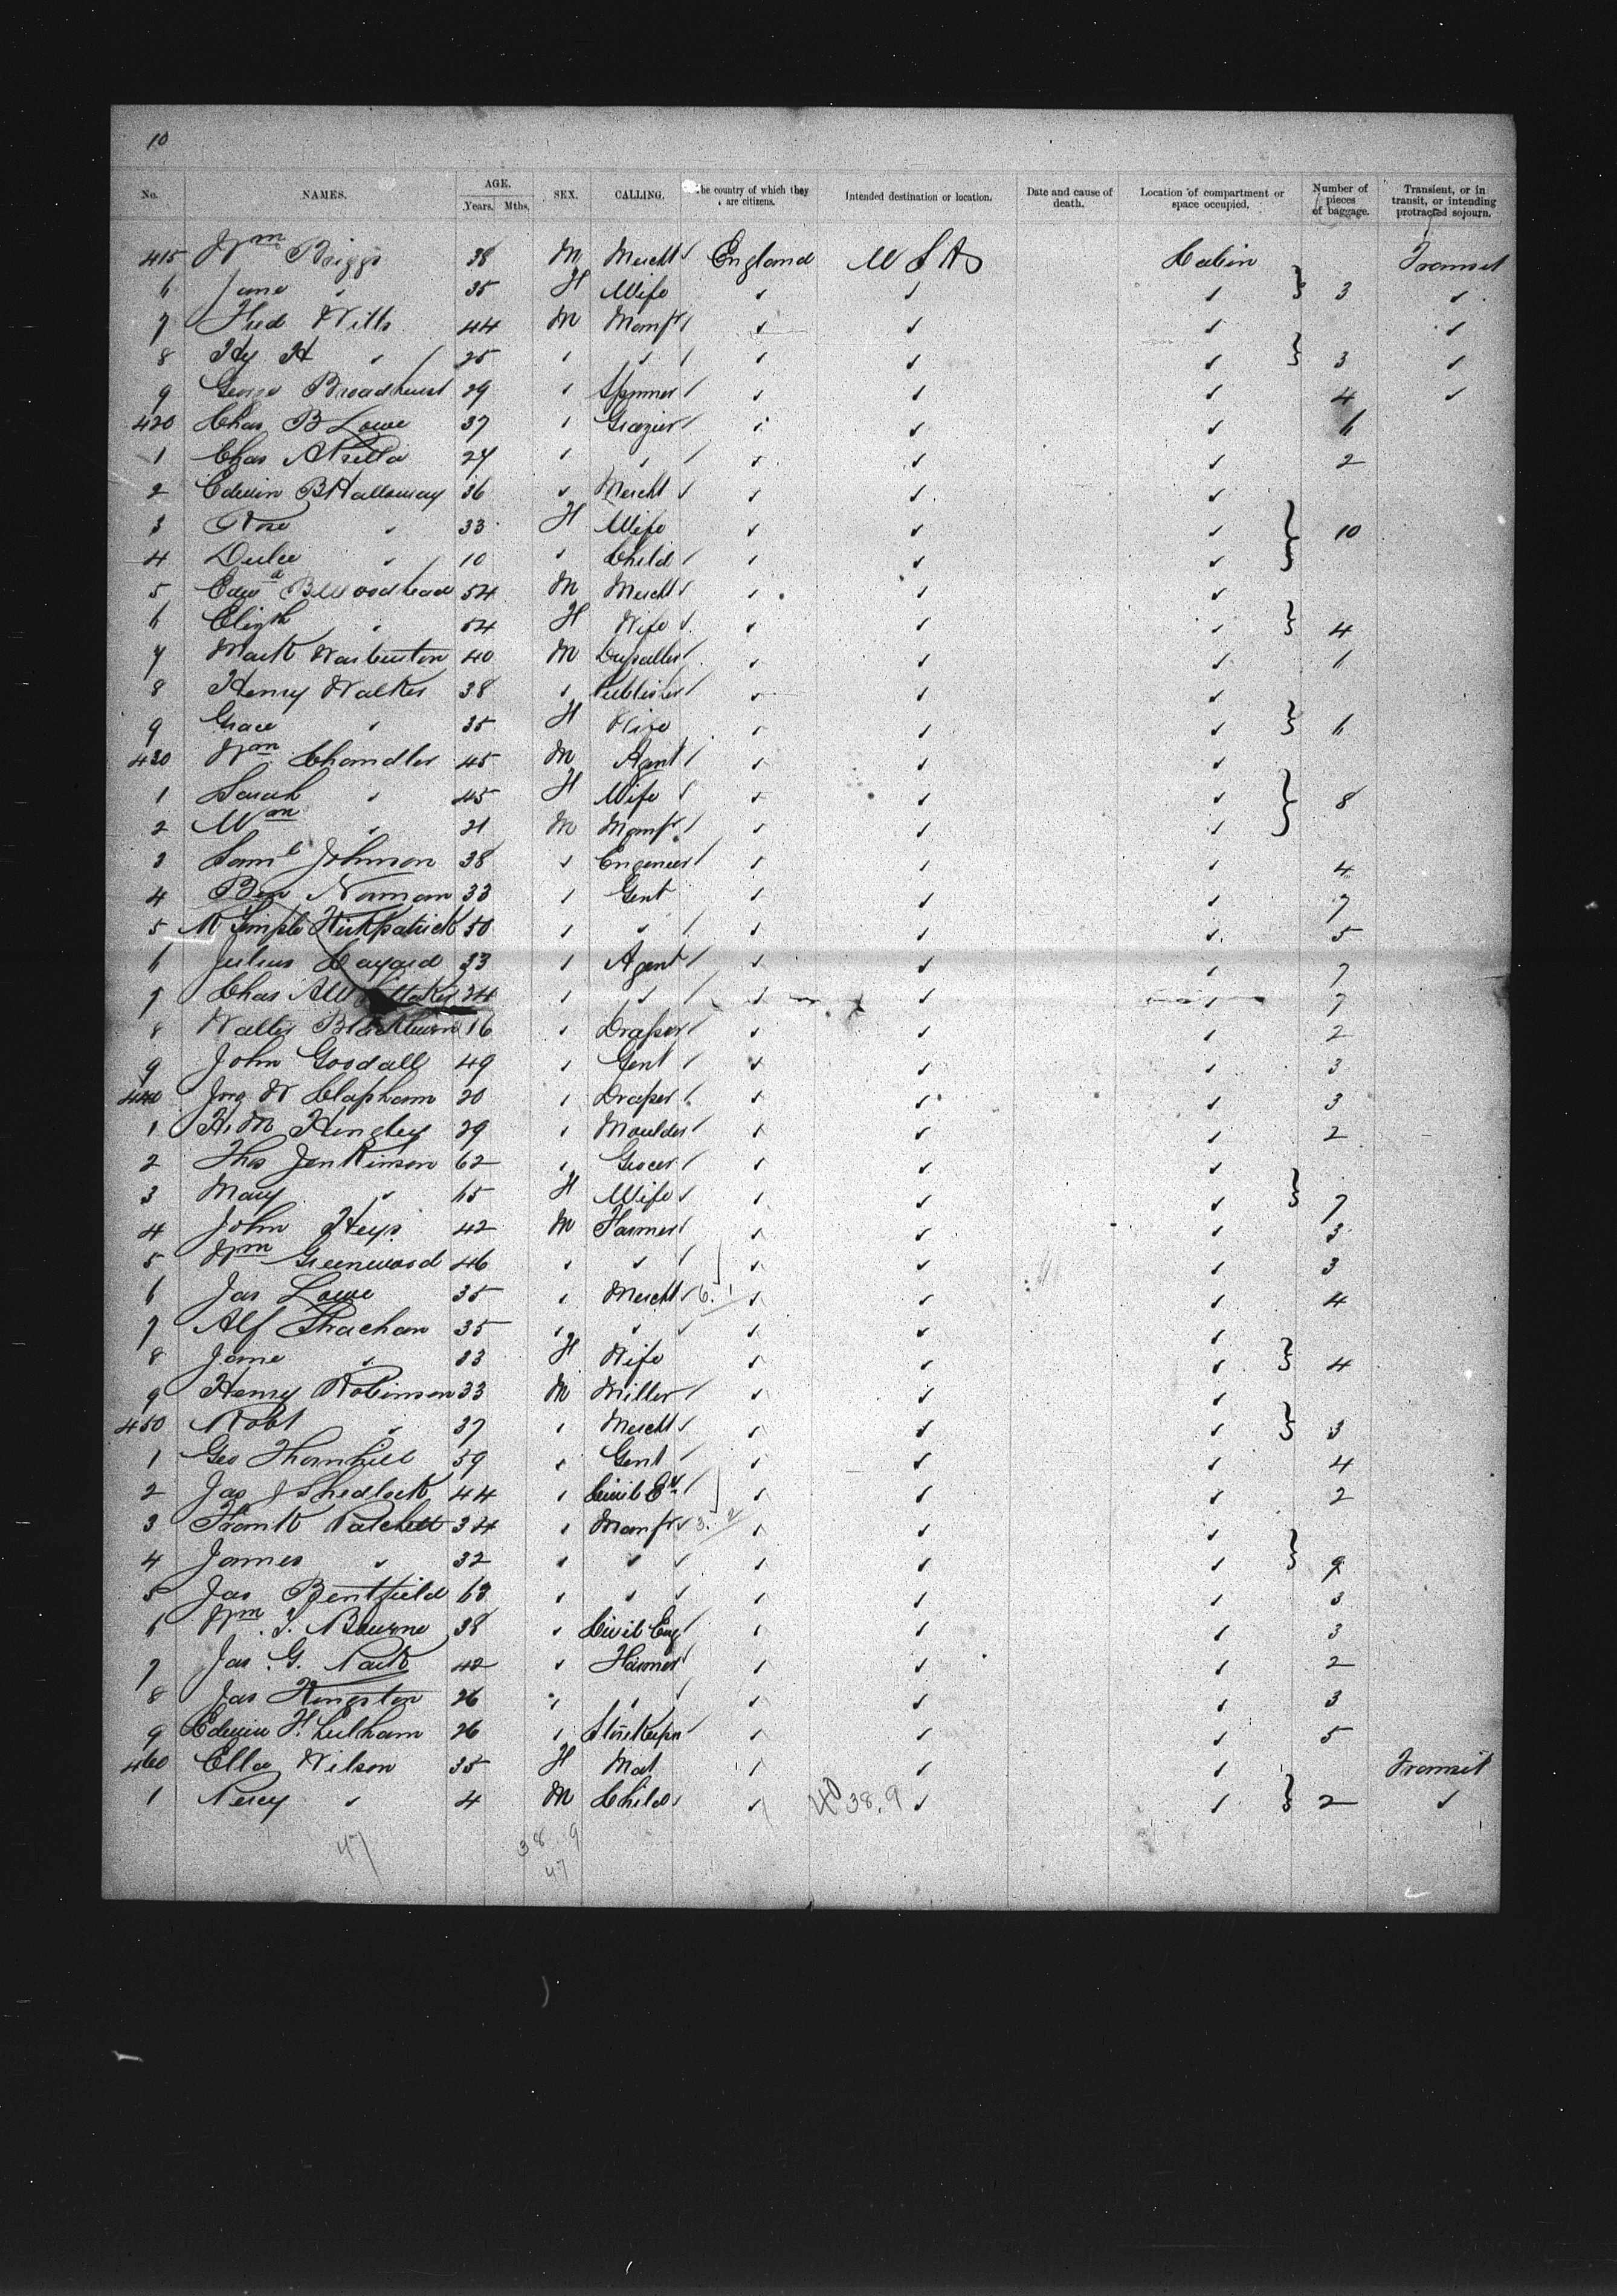 10
No. NAMES. AGE. Years. Mths. SEX. CALLING. he country of which they are citizens. Intended destination or location. Date and cause of death. Location of compartment or space occupied. Number of pieces of baggage. Transient, or in transit, or intending protracted sojourn.
415 Wm Briggs 38 M Mercht England U S A Cabin Transit
6 Jane " 35 F Wife " " " } 3 "
7 Fred Wills 44 M Manfr " " " "
8 Hy H " 25 " " " " " } 3 "
9 George Broadhurst 29 " Spinner " " " 4 "
420 Chas B Lowe 37 " Grazier " " " 6
1 Chas 27 " " " " " 2
2 Edwin B Halloway 36 " Mercht " " "
3 Rose " 33 F Wife " " " } 10
4 Dulce " 10 " Child " " "
5 Edwd B Woodhead 54 M Mercht " " "
6 Elizth " 54 F Wife " " " } 4
7 Mark Warburton 40 M " " " 6
8 Henry Walker 38 " Publisher " " "
9 Grace " 35 F Wife " " " } 6
430 Wm Chandler 45 M Agent " " "
1 Sarah " 45 F Wife " " " } 8
2 Wm " 21 M Manfr " " "
3 Saml Johnson 38 " Engineer " " " 4
4 Ben Norman 33 " Gent " " " 7
5 R Temple Kirkpatrick 50 " " " " " 5
6 Julius Cayard 33 " Agent " " " 7
7 Chas A Whittaker 24 " " " " " 7
8 Walter Blackburn 16 " Draper " " " 2
9 John Goodall 49 " Gent " " " 3
440 Jno W Clapham 20 " Draper " " " 3
1 H. M Hingley 29 " Moulder " " " 2
2 Thos Jenkinson 62 " Grocer " " "
3 Mary " 65 F Wife " " " } 7
4 John Heys 42 M Farmer " " " 3
5 Wm Greenwood 46 " " " " " 3
6 Jas Lowe 35 " Mercht 6. 1 " " " 4
7 Alf Strachan 35 " " " " "
8 Jane " 33 F Wife " " " } 4
9 Henry Robinson 33 M Miller " " "
450 Robt " 37 " Mercht " " " } 3
1 Geo Thornhill 59 " Gent " " " 4
2 Jas J Shedlock 44 " Civil Er " " " 2
3 Frank Patchett 34 " Manfr 3. 2 " " "
4 James " 32 " " " " " } 9
5 Jas Bentfield 63 " " " " " 3
6 Wm. T. Bourne 38 " Civil Eng " " " 3
7 Jas. G. Park 42 " Farmer " " " 2
8 Jas Kingston 26 " " " " " 3
9 Edwin H. Lulham 26 " Storekeeper " " " 5
460 Ella Wilson 35 F Mat " " " Transit
1 Percy " 4 M Child " 38. 9 " " } 2 "
47 38 9
47